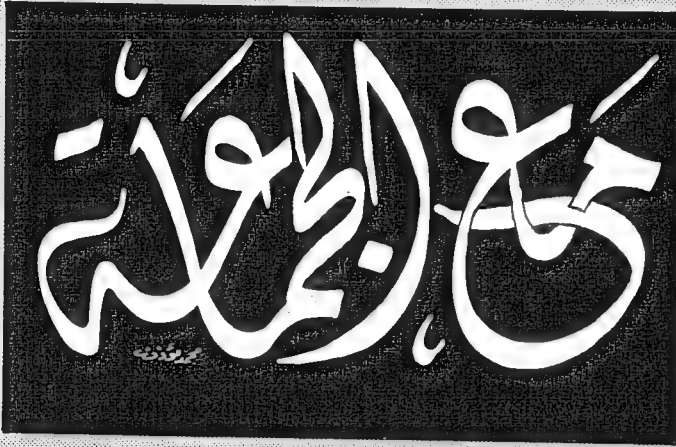 مع الجماعة